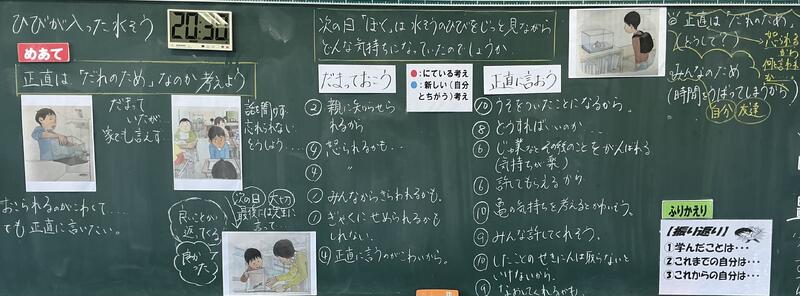 ひびが入った水そう
20:30
めあて
正直は「だれのため」なのか考えよう
だまって
いたが
家でも言えず
話を聞けず
忘れられない
どうしよう…
おこられるのがこわくて…
でも正直に言いたい。
良いことが
返ってくる
次の日
大切
最後には先生に
言って
次の日「ぼく」は水そうのひびをじっと見ながら
どんな気持ちになっていたのでしょうか。
だまっておこう
●:にている考え
●:新しい(自分
とちがう)考え
正直に言おう
② 親に知らせら
れるから
④ 怒られるかも…
④ 〃
① みんなからきらわれるかも。
① ぎゃくにせめられるかも
しれない。
④ 正直に言うのがこわいから。
⑩ うそをついたことになるから。
⑧ どうすればいいのか…
⑥ じゅ業などその後のことをがんばれる
(気持ちが楽)
⑥ 許してもらえるから
⑩ 亀の気持ちを考えるとかわいそう。
⑨ みんな許してくれそう。
⑩ したことのせきにんは取らないと
いけないから。
⑨ なおしてくれるかも。
正直は「だれのため」
(どうして?)
怒られる
から
何言われ
か…
みんなのため
(時間をうばってしまうから)
自分
友達
ふりかえり
【振り返り】
①学んだことは・・・
②これまでの自分は・・・
③これからの自分は・・・